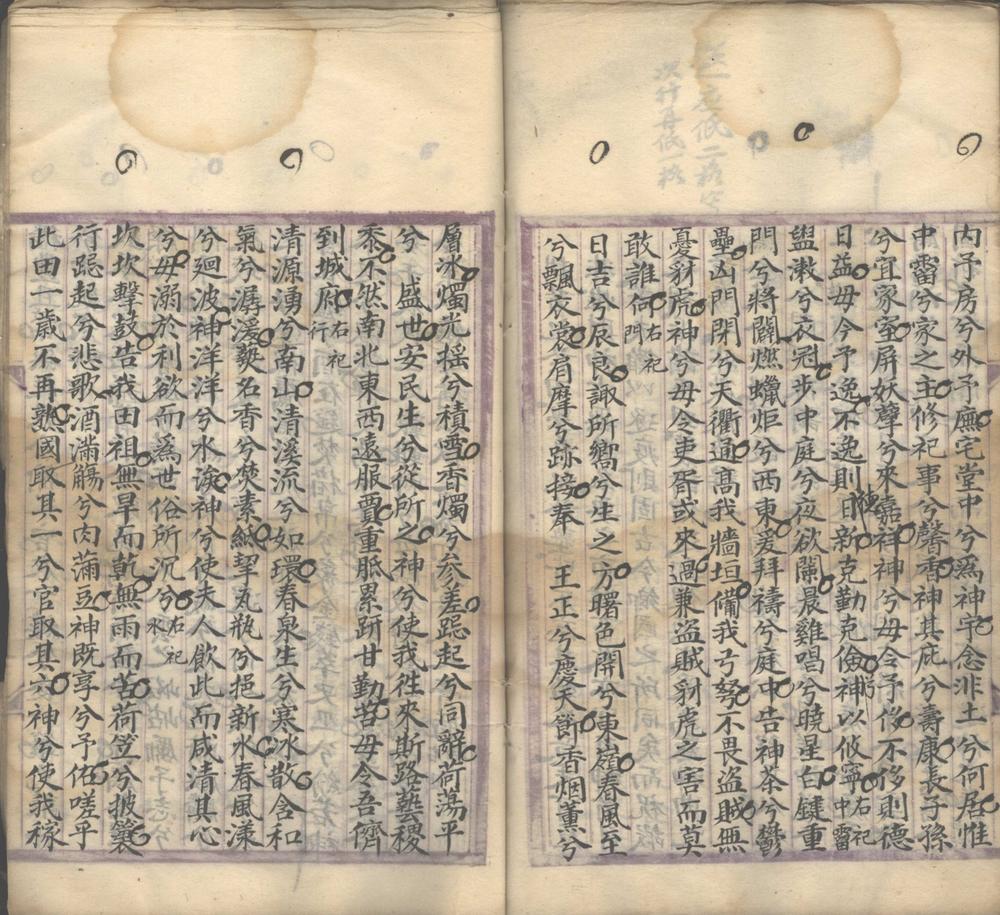 內予房兮外予廡宅堂中兮爲神宇念非土兮何居惟
中霤兮家之主修祀事兮馨香神其庇兮壽康長子孫
兮宜家室屏妖孽兮來嘉祥神兮毋令予侈不侈則德
日益毋令予逸不逸則日新克勤克儉神以攸寧右祀中霤
盥漱兮衣冠步中庭兮夜欲闌晨雞唱兮曉星白鍵重
門兮將闢燃蠟炬兮西東爰拜禱兮庭中告神荼兮鬱
壘凶門閉兮天衢通高我牆垣備我弓弩不畏盜賊無
憂豺虎神兮毋令吏胥或來過兼盜賊豺虎之害而莫
敢誰何右祀門
日吉兮辰良諏所嚮兮生之方曙色開兮東嶺春風至
兮飄衣裳肩摩兮跡接奉 王正兮慶天節香烟薰兮
層冰燭光搖兮積雪香燭兮参差跽起兮同辭荷蕩平
兮 盛世安民生兮從所之神兮使我徃來斯路藝稷
黍不然南北東西遠服賈重胝累趼甘勤苦毋令吾儕
到城府右祀行
清源湧兮南山清溪流兮如環春泉生兮寒冰散含和
氣兮潺湲爇名香兮焚素紙挈瓦瓶兮挹新水春風漾
兮廻波神洋洋兮水涘神兮使夫人飲此而咸清其心
兮毋溺於利欲而爲世俗所沉兮右祀水
坎坎擊鼓告我田祖無旱而乾無雨而苦荷笠兮披蓑
行跽起兮悲歌酒滿觴兮肉蒲豆神既享兮予佑嗟乎
此田一歲不再熟國取其一兮官取其六神兮使我稼